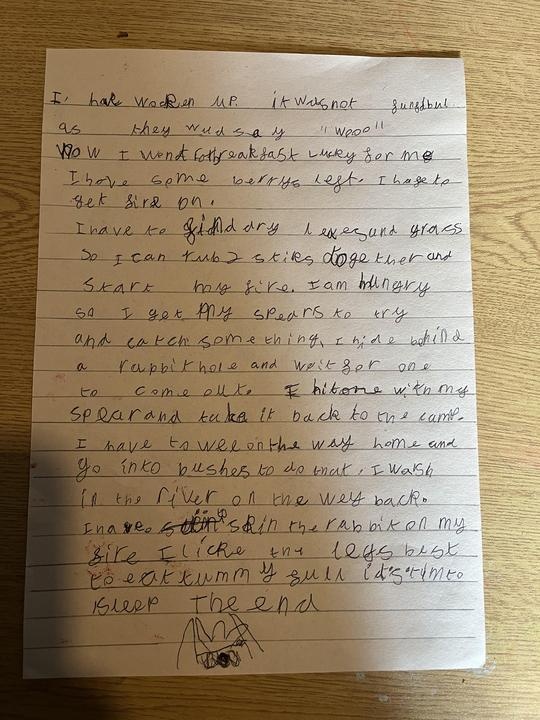 I have wocken up. it was not
as they wud say "wooo"
now I want to breakfast lucky for me
I have some berrys left. I have to
get fire on.
I have to find dry leaves and grass
So I can rub 2 stiks together and
Start my fire. I am hungry
so I get my spears to try
and catch something, I hide behind
a rabbit hole and wait for one
to come out. I hit one with my
spear and take it back to the camp.
I have to wee on the way home and
go into bushes to do that. I wash
in the river on the wey back.
I have skin the rabbit on my
fire I like the legs best
to eat tummy full its time to
sleep The end